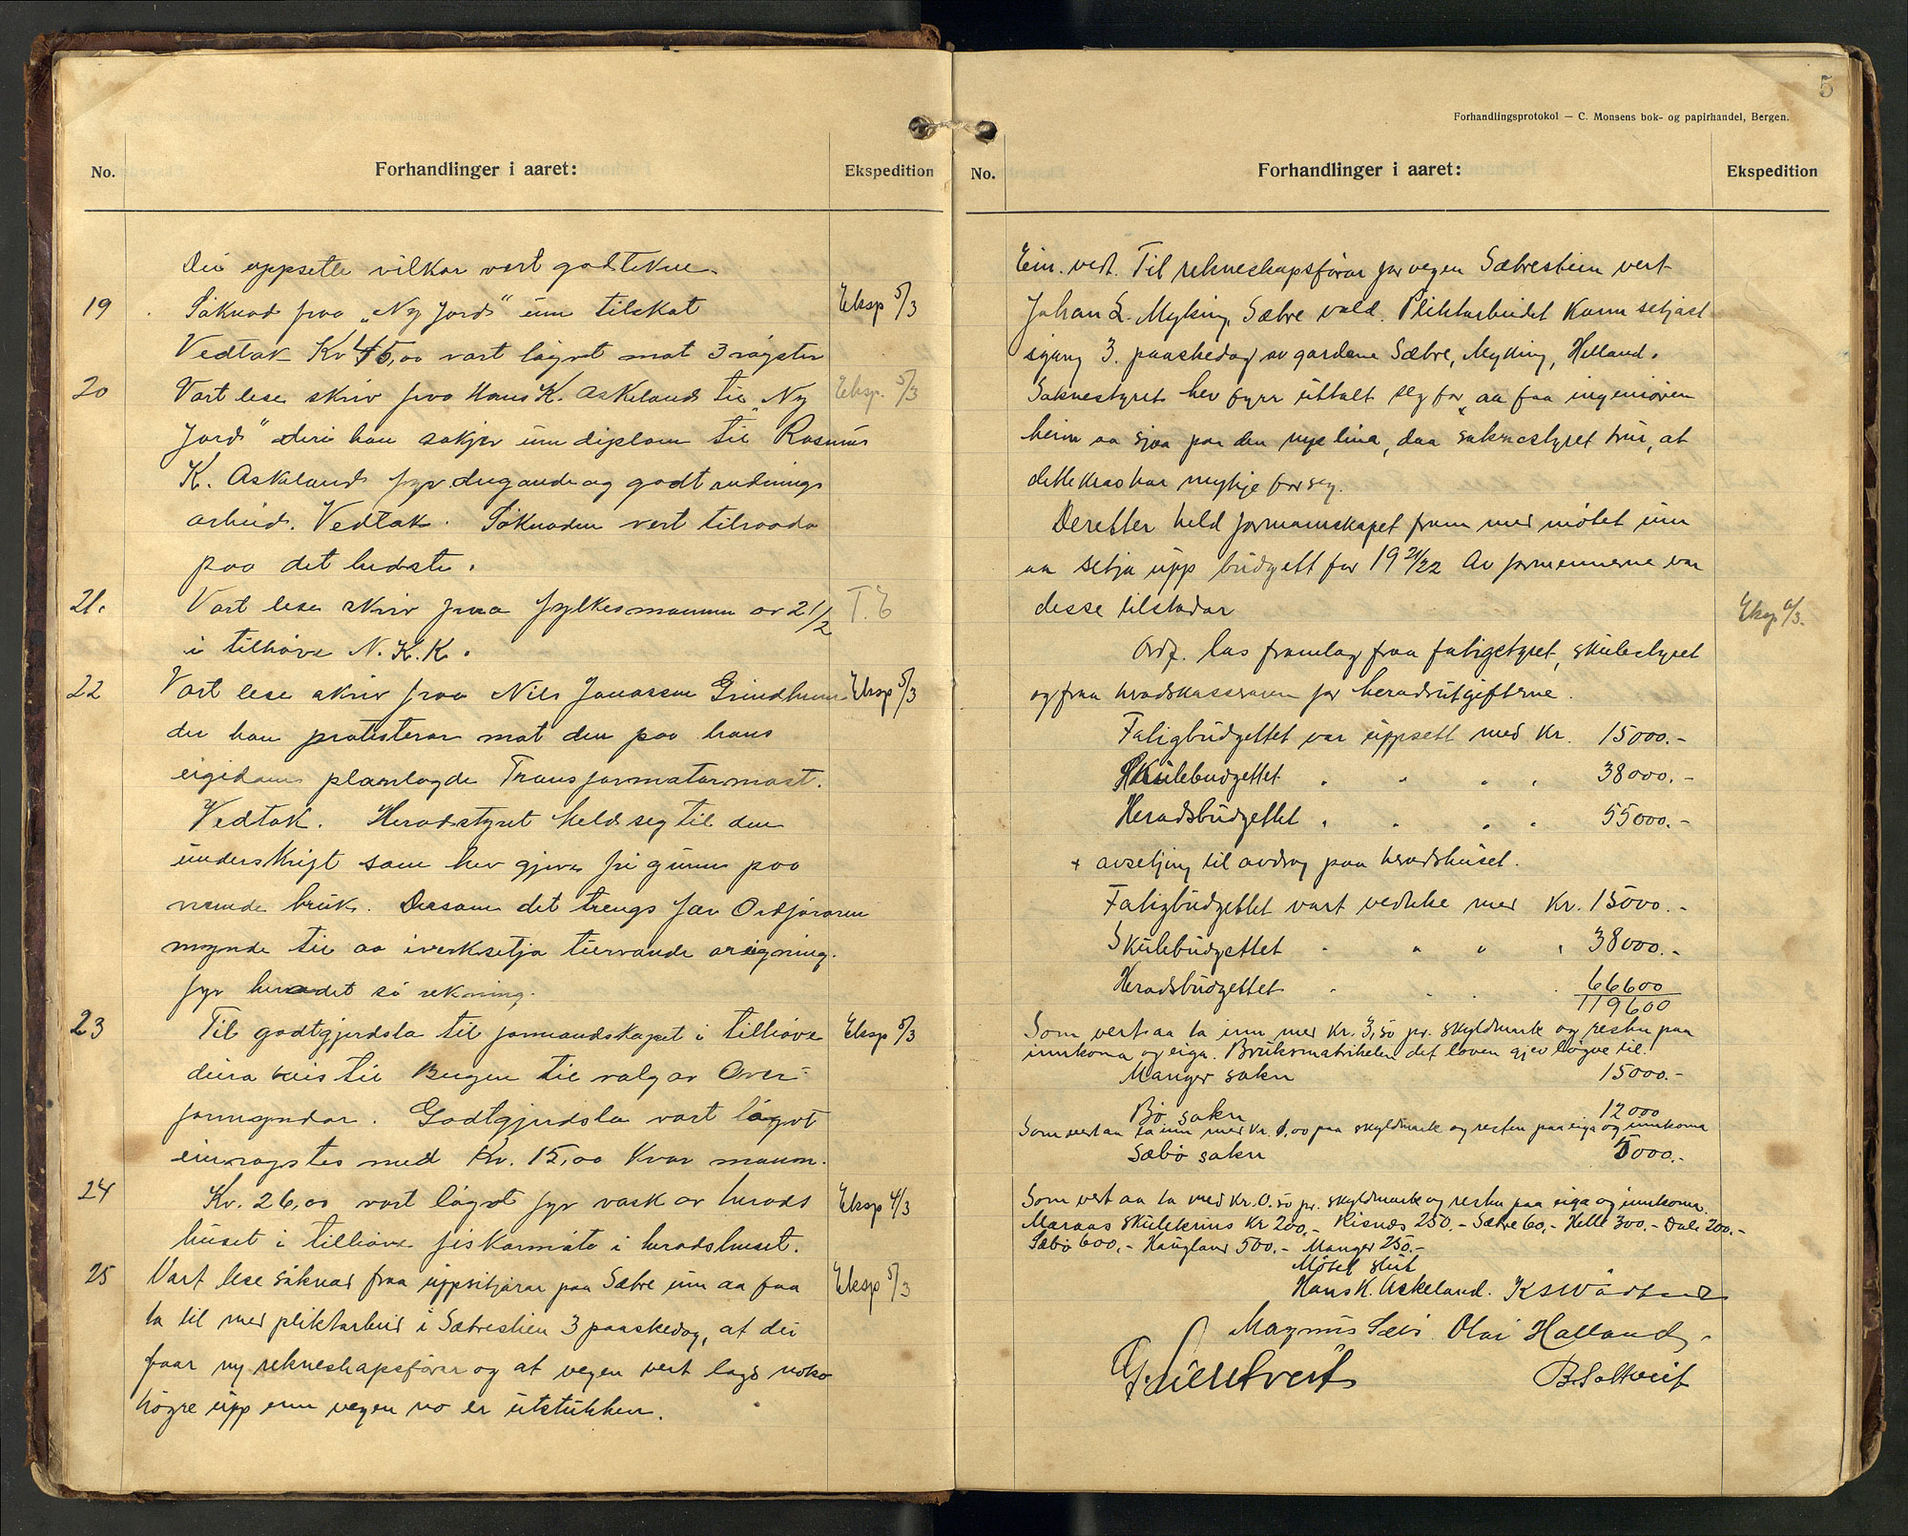 No.
Forhandlinger i aaret:
Ekspedition
Dei uppsette vilkor vart godtekne.
19 Söknad fraa „Ny Jord" um tilskot Eksp 5/3
Vedtak Kr 45,00 vart löyvt mot 3 röyster
20 Vart lese skriv fraa Hans K. Askeland til „Ny Eksp. 5/3
Jord" deri han sökjer um diplom til Rasmus
K. Askeland fyr dugande og godt rudnings
arbeid. Vedtak. Söknaden vert tilraadd
paa det bedste.
21. Vart lese skriv fraa fylkesmannen av 21/2 T. E
i tilhöve N.K.K.
22 Vart lese skriv fraa Nils Jonassen Grindheim Eksp 5/3
der han protesterar mot den paa hans
eigedom planlagde Transformatormast.
Vedtak. Heradstyret held seg til den
underskrift som hev gjeve fri grunn paa
nemnde bruk. Dersom det trengs fær Ordföraren
mynde til aa iverksetja turvande oreigning
fyr heradet si rekning.
23 Til godtgjerdsla til formandskapet i tilhöve Eksp 5/3
deira reis til Bergen til valg av Over-
formyndar. Godtgjerdsla vart löyvt
einröystes med Kr. 15,00 kvar mann.
24 Kr. 26,00 vart löyvt fyr vask av herads Eksp 4/3
huset i tilhöve fiskarmöte i heradshuset.
25 Vart lese söknad fraa uppsitjarar paa Sæbre um aa faa Eksp 5/3
ta til med pliktarbeid i Sæbrestien 3 paaskedag, at dei
faar ny rekneskapsförar og at vegen vert lagd noko
högre upp enn vegen no er utstukken.
5
Forhandlingsprotokol — C. Monsens bok- og papirhandel, Bergen.
No.
Forhandlinger i aaret:
Ekspedition
Ein. vedt. Til rekneskapsförar for vegen Sæbrestien vert
Johan L. Myking, Sæbre vald. Pliktarbeidet kann setjast
igang 3. paaskedag av gardane Sæbre, Myking, Helland.
Soknestyret hev fyrr uttalt seg for aa faa ingeniören
heim aa sjaa paa den nye lina, daa soknestyret trur, at
dette krav har mykje for seg.
Deretter held formannskapet fram med mötet um
aa setja upp budgett for 1921/22 Av formennerne var
desse tilstadar Eksp 6/3.
Ordf. las framlag fraa fatigstyret, skulestyret
og fraa heradskasseraren for heradsutgifterne.
Fatigbudgettet var uppsett med Kr. 15000.-
Skulebudgettet " " " " 38000.-
Heradsbudgettet " " " " 55000.-
+ avsetjing til avdrag paa heradshuset.
Fatigbudgettet vart vedteke med Kr. 15000.-
Skulebudgettet " " " " 38000.-
Heradsbudgettet " " " " 66600
119600
Som vert aa ta inn med Kr. 3,50 pr. skyldmark og resten paa
innkoma og eiga. Bruksmatrikelen det loven gjev löyve til.
Manger sokn 15000.-
Bö sokn 12000
Som vert aa ta inn med Kr. 1,00 paa skyldmark og resten paa eiga og innkoma
Sæbö sokn 5000.-
Som vert aa ta med Kr. 0.50 pr. skyldmark og resten paa eiga og innkoma.
Maraas skulekrins Kr 200,- Risnes 250.- Sæbre 60,- Helle 300.- Dale 200.-
Sæbö 600,- Haugland 500.- Manger 250.-
Mötet slut
Hans K. Askeland.
Magnus Sæbö Olai Halland
B. Soltveit